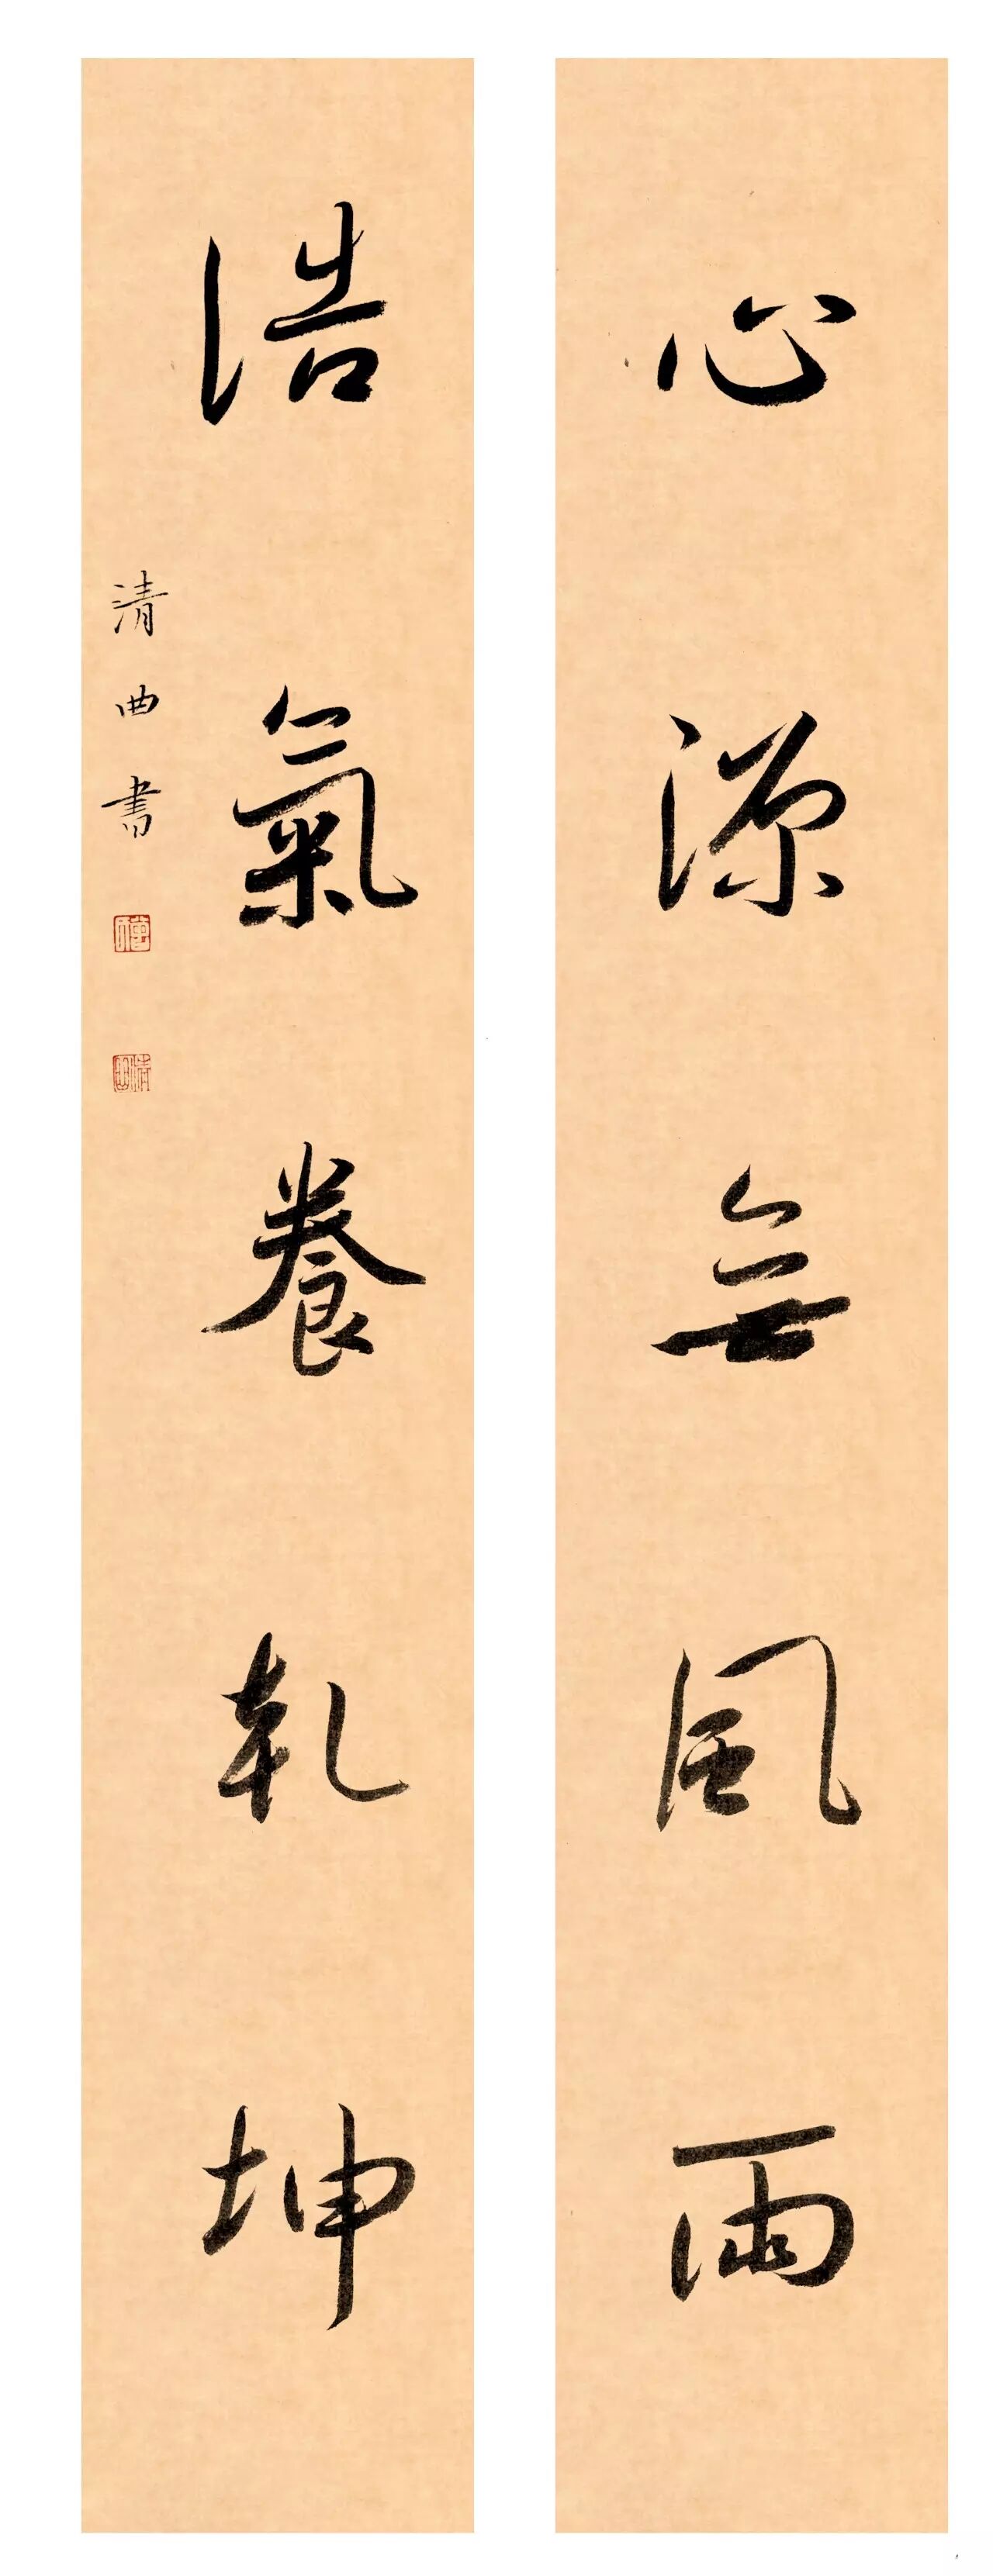 心源無風雨
浩氣養乾坤
清曲書